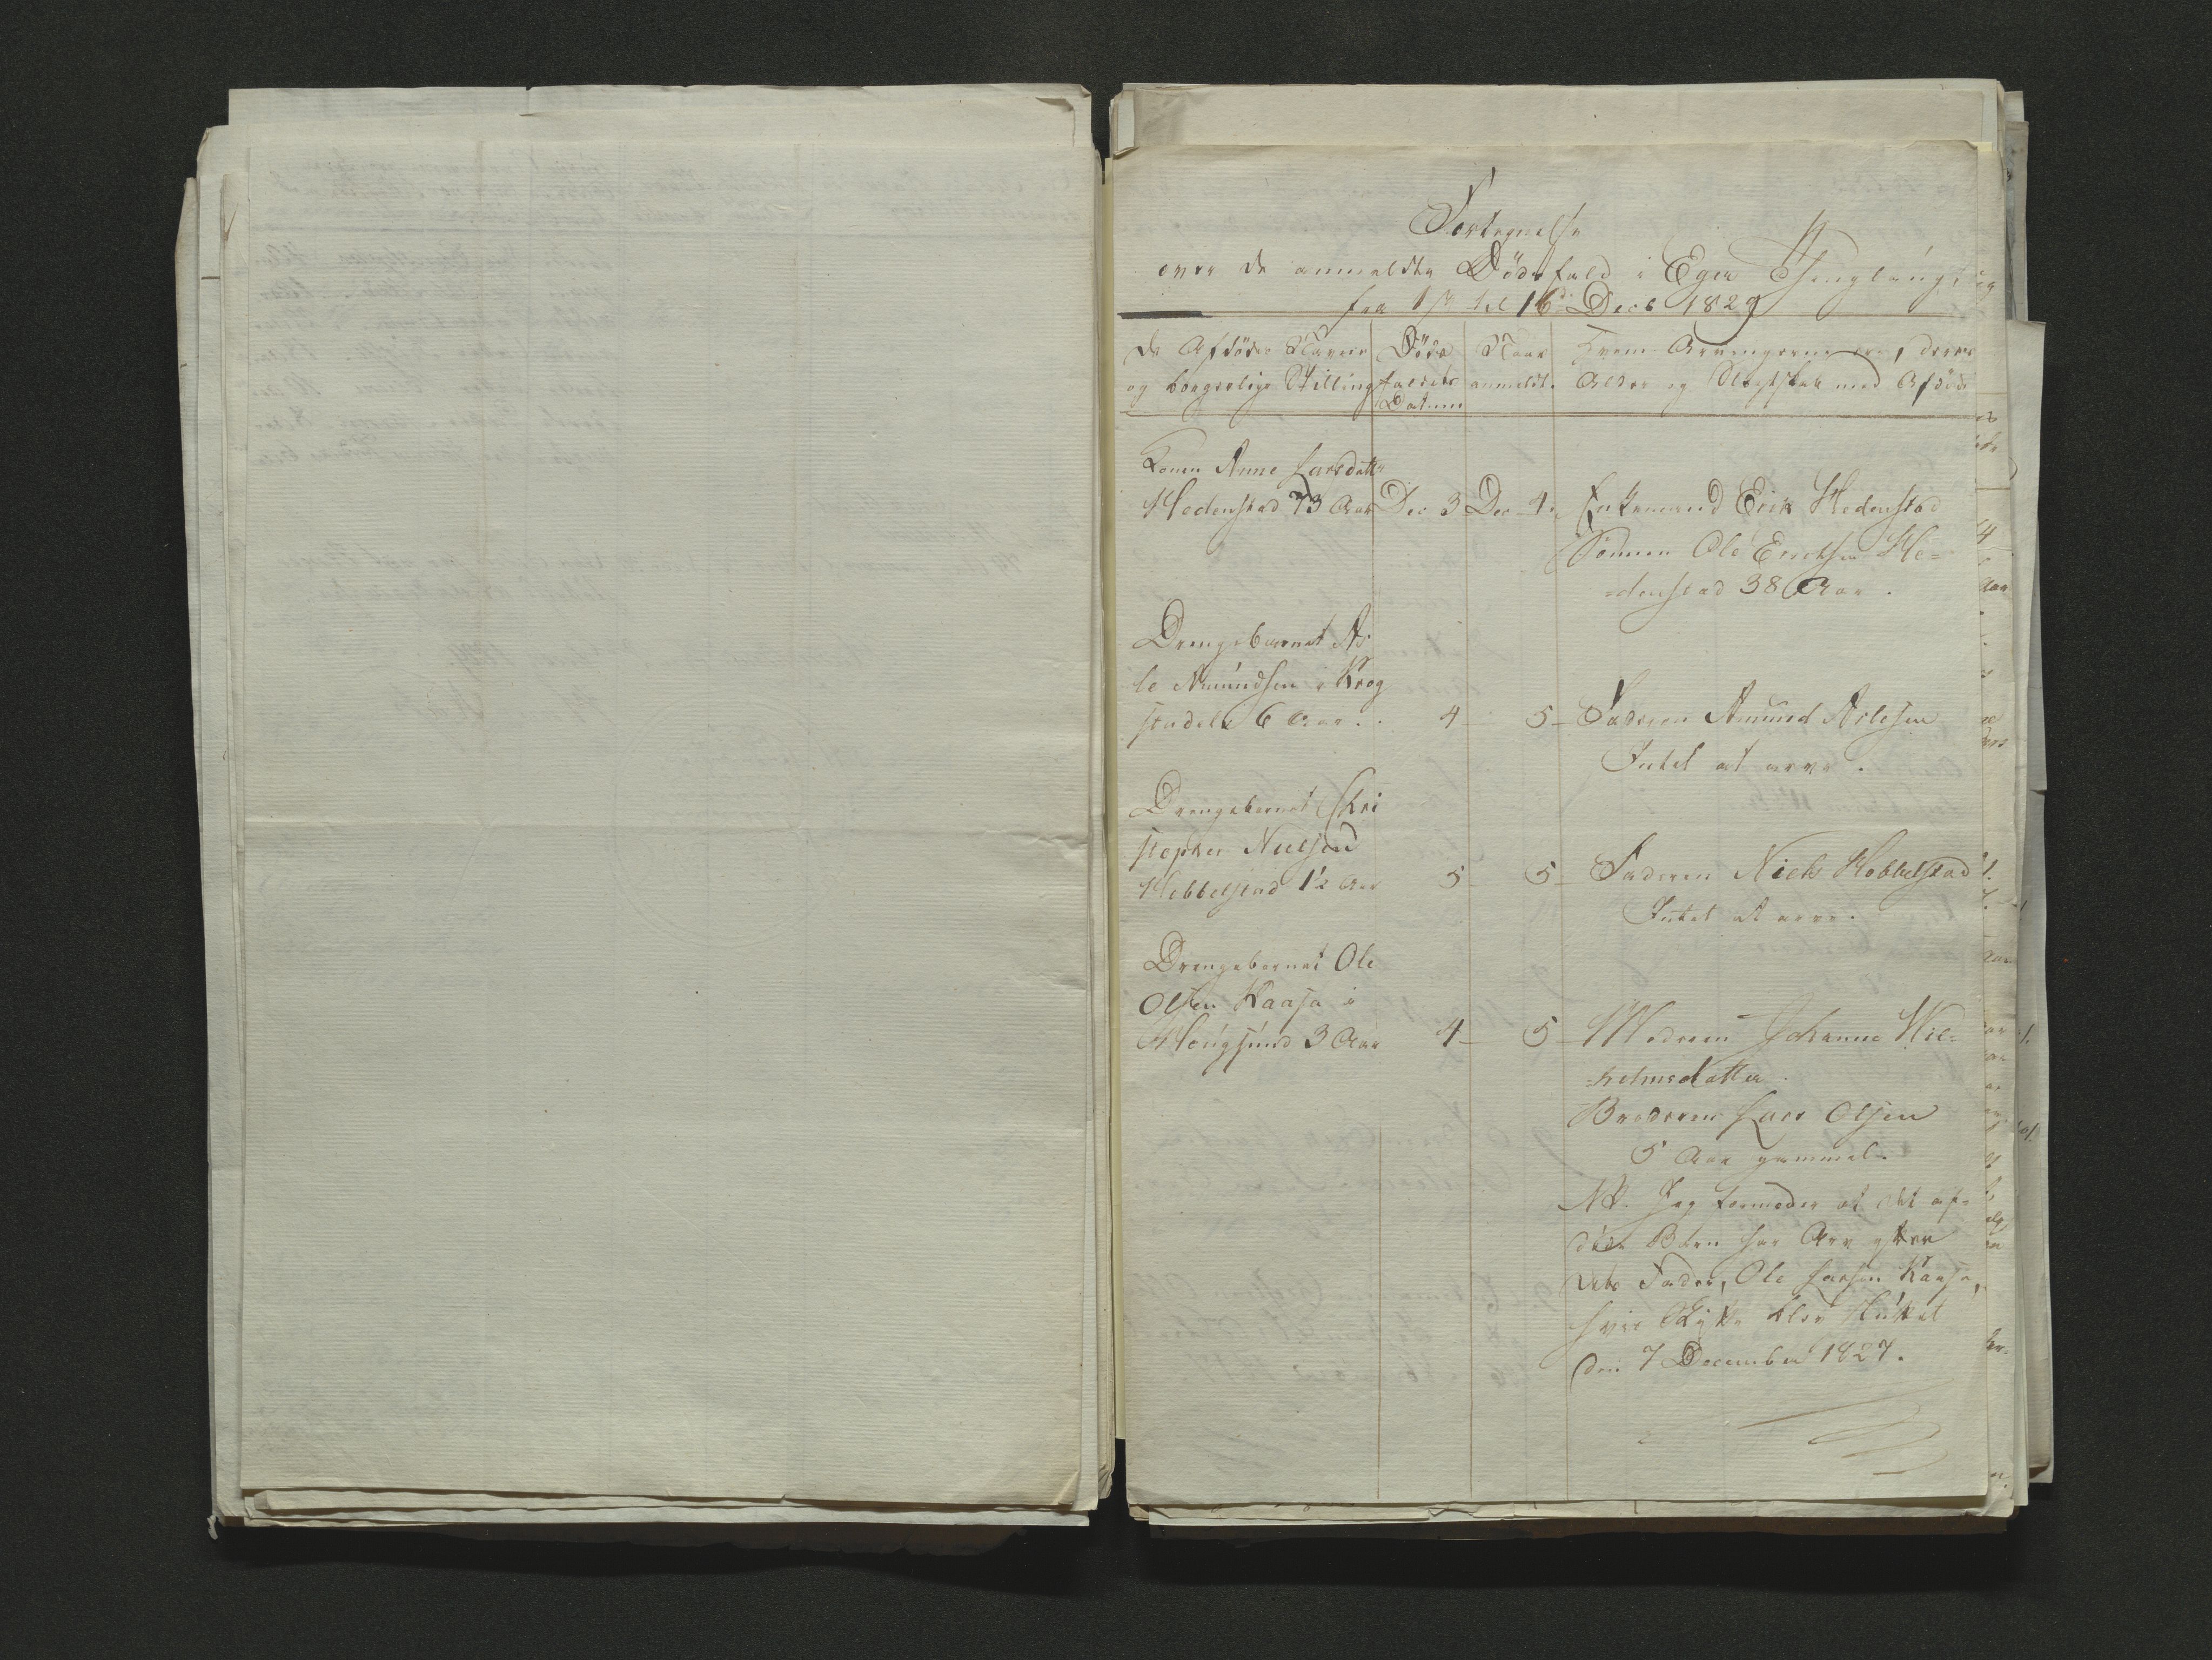 Fortegnelse
over de anmeldte Dödsfald i Eger Thinglaug,
fra 1ste til 16de Decb 1829
De Afdödes Navne
og borgerlige Stilling
Döds
faldets
Datum
Naar
anmeldt.
Hvem Arvingerne ere, deres
Alder og Slegtskab med Afdöde
Konen Anne Larsdatter
Hedenstad 73 Aar Dec 3 Dec 4. Enkemand Erik Hedenstad
Sönnen Ole Erichsen He=
=denstad 38 Aar.
Drengebarnet As
le Amundsen i Krog
stadelv 6 Aar. 4 5 Faderen Amund Aslesen
Intet at arve.
Drengebarnet Chri
stopher Nielsen
Hobbelstad 1½ Aar 5 5 Faderen Niels Hobbelstad
Intet at arve.
Drengebarnet Ole
Olsen Kaasa i
Hougsund 3 Aar 4 5 Moderen Johanne Wil=
=helmsdatter.
Broderen Lars Olsen
5 Aar gammel.
NB. Jeg formoder at det af=
döde Barn har Arv efter
dets Fader, Ole Larsen Kaasa,
hvis Skifte blev sluttet
den 7 December 1827.